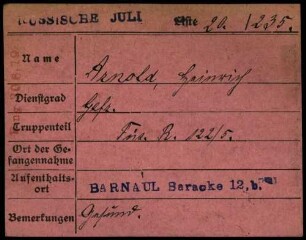 RUSSISCHE JULI Liste 20. 1235.
Name Arnold, Heinrich
Dienstgrad Gefr.
Truppenteil Res. R. 122/5.
Ort der Ge-
fangennahme
Aufenthalts-
ort BARNAUL Baracke 12, b.
Bemerkungen Gesund.